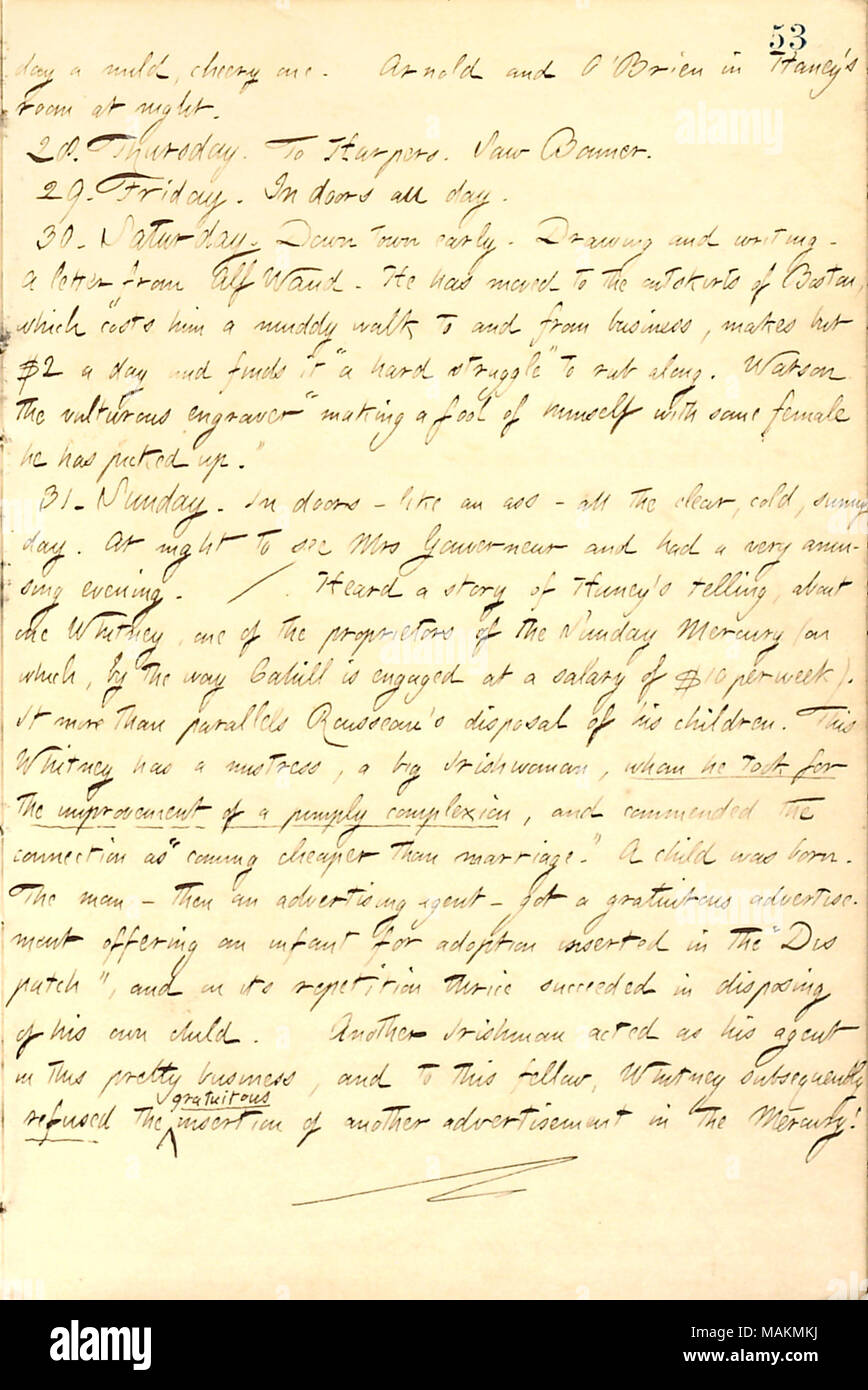 53
day a mild, cheery one. Arnold and O'Brien in Haney's
room at night.
28. Thursday. To Harpers. Saw Bonner.
29. Friday. In doors all day.
30. Saturday. Down town early. Drawing and writing.
a letter from Alf Waud. He has moved to the outskirts of Boston,
which "costs him a muddy walk to and from business, makes but
$2 a day and finds it "a hard struggle" to rub along. Watson
the vulturous engraver "making a fool of himself with some female
he has picked up."
31. Sunday. In doors - like an ass - all the clear, cold, sunny
day. At night to see Mrs Gouverneur and had a very amu-
sing evening. /. Heard a story of Haney's telling, about
one Whitney, one of the proprietors of the Sunday Mercury (on
which, by the way Cahill is engaged at a salary of $10 per week).
It more than parallels Rousseau's disposal of his children. This
Whitney has a mistress, a big Irishwoman, whom he took for
the improvement of a pimply complexion, and commended the
connection as "coming cheaper than marriage." A child was born.
The man - then an advertising agent - got a gratuitous advertise-
ment offering an infant for adoption inserted in the "Dis
patch", and on its repetition thrice succeeded in disposing
of his own child. Another Irishman acted as his agent
in this pretty business, and to this fellow, Whitney subsequently
refused the gratuitous insertion of another advertisement in the Mercury!
alamy
Image ID: MAKMKJ
www.alamy.com